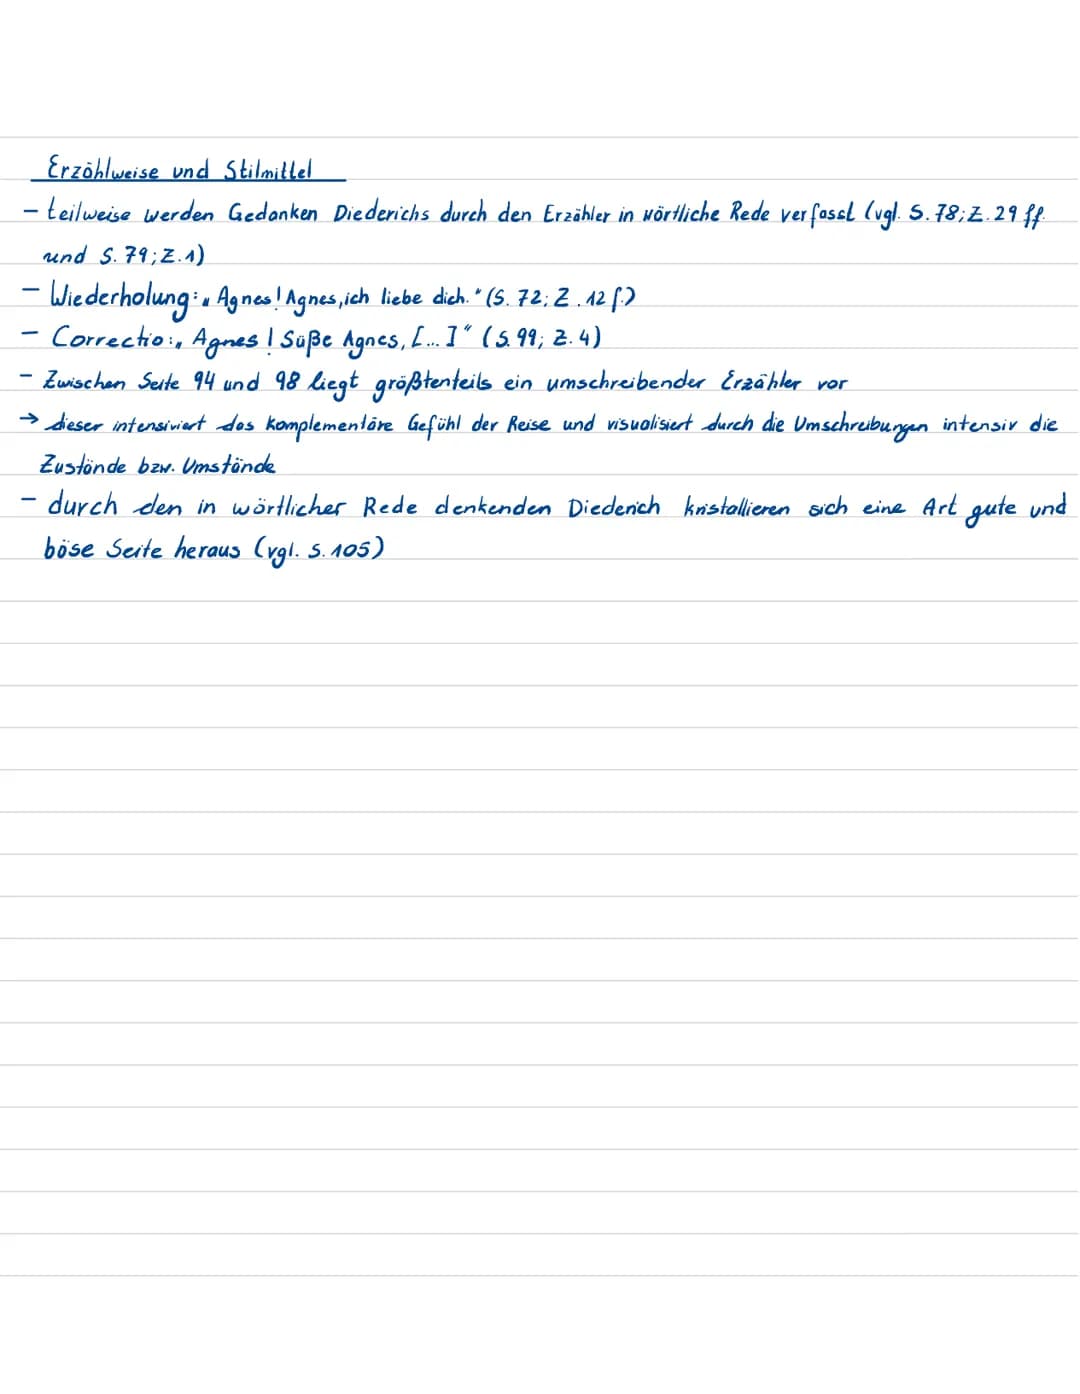 Erzählweise und Stilmittel
- teilweise werden Gedanken Diederichs durch den Erzähler in wörtliche Rede verfasst (vgl. S. 78; Z. 29 ff.
und S. 79; Z. 1)
- Wiederholung: „Agnes! Agnes, ich liebe dich." (S. 72; Z. 12 f.)
- Correctio: „Agnes! Süße Agnes, [...]" (S. 99; Z. 4)
- Zwischen Seite 94 und 98 liegt größtenteils ein umschreibender Erzähler vor
→ dieser intensiviert das komplementäre Gefühl der Reise und visualisiert durch die Umschreibungen intensiv die
Zustände bzw. Umstände
- durch den in wörtlicher Rede denkenden Diederich kristallieren sich eine Art gute und
böse Seite heraus (vgl. S. 105)